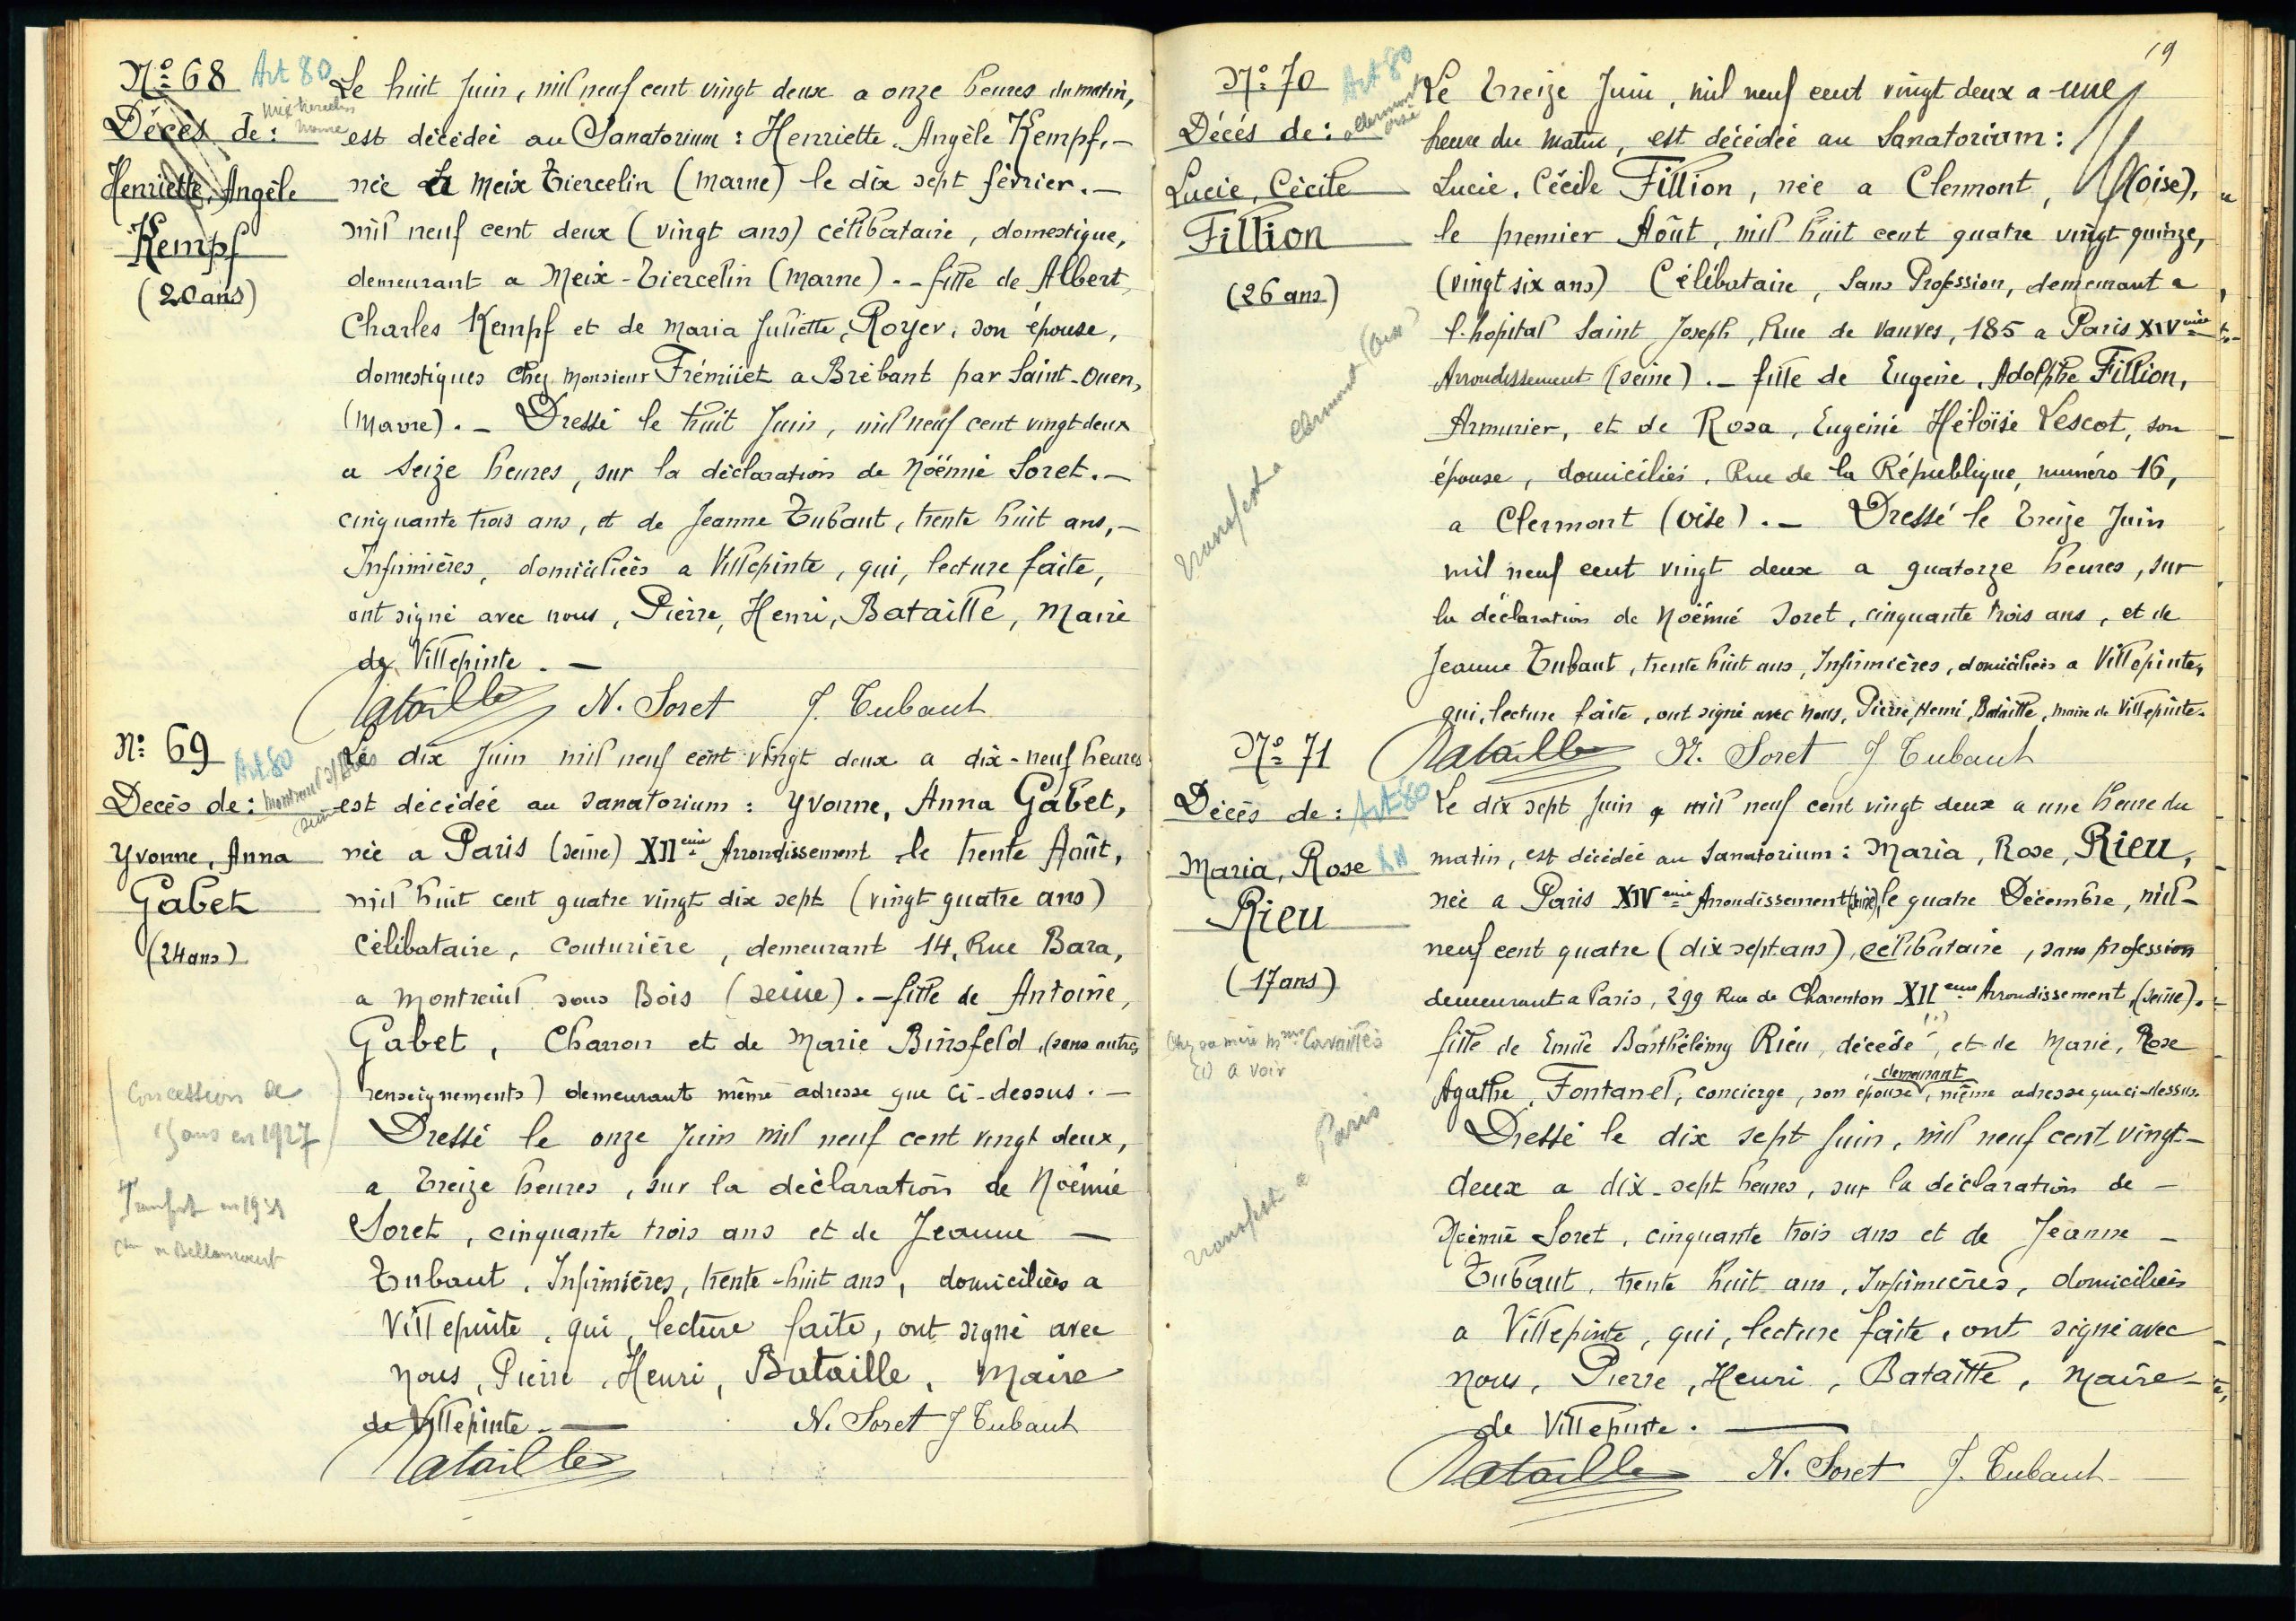 Nº 68 Art 80
Meix Tiercelin
Marne
Décès de :
Henriette, Angèle
Kempf
(20 ans)
Le huit Juin, mil neuf cent vingt deux a onze heures du matin,
est décédée au Sanatorium : Henriette Angèle Kempf, —
née a Meix Tiercelin (Marne) le dix sept février. —
mil neuf cent deux (vingt ans) célibataire, domestique,
demeurant a Meix-Tiercelin (Marne). - fille de Albert
Charles Kempf et de Maria Juliette, Royer, son épouse,
domestiques chez Monsieur Frémiiet a Brébant par Saint-Ouen,
(Marne). — Dressé le huit Juin, mil neuf cent vingt deux
a seize heures, sur la déclaration de Noëmie Soret. —
cinquante trois ans, et de Jeanne Tubaut, trente huit ans, —
Infirmières, domiciliées a Villepinte, qui, lecture faite,
ont signé avec nous, Pierre, Henri, Bataille, Maire
de Villepinte. —
Bataille N. Soret J. Tubaut
Nº 69 Art 80
Montreuil s/ Bois
Seine
Decès de :
Yvonne, Anna
Gabet
(24 ans)
(Concession de
15 ans en 1927)
Transfert en 193
Le dix Juin mil neuf cent vingt deux a dix-neuf heures
est décédée au sanatorium : Yvonne, Anna Gabet,
née a Paris (Seine) XIIeme Arrondissement le trente Août,
mil huit cent quatre vingt dix sept (vingt quatre ans)
célibataire, couturière, demeurant 14, Rue Bara,
a Montreuil sous Bois (Seine). — fille de Antoine,
Gabet, Charron et de Marie Binsfeld, (sans autres
renseignements) demeurant même adresse que ci-dessus. —
Dressé le onze Juin mil neuf cent vingt deux,
a treize heures, sur la déclaration de Noëmie
Soret, cinquante trois ans et de Jeanne —
Tubaut, Infirmières, trente-huit ans, domiciliées a
Villepinte, qui, lecture faite, ont signé avec
nous, Pierre, Henri, Bataille, Maire
de Villepinte. — N. Soret J Tubaut
Bataille
19
Nº 70 Art 80
Clermont
Oise
Décés de :
Lucie, Cécile
Fillion
(26 ans)
Transfert a Clermont (Oise)
Le treize Juin, mil neuf cent vingt deux a une
heure du matin, est décédée au Sanatorium :
Lucie, Cécile Fillion, née a Clermont, (Oise),
le premier Août, mil huit cent quatre vingt quinze,
(vingt six ans) Célibataire, Sans Profession, demeurant a
l'hopital Saint Joseph, Rue de Vanves, 185 a Paris XIVeme
Arrondissement (Seine). — fille de Eugène, Adolphe Fillion,
Armurier, et de Rosa, Eugénie Héloïse Lescot, son
épouse, domiciliés, Rue de la République, numéro 16,
a Clermont (Oise). — Dressé le treize Juin
mil neuf cent vingt deux a quatorze heures, sur
la déclaration de Noëmie Soret, cinquante trois ans, et de
Jeanne Tubaut, trente huit ans, Infirmières, domiciliées a Villepinte,
qui, lecture faite, ont signé avec nous, Pierre, Henri, Bataille, maire de Villepinte.
Bataille N. Soret J Tubaut
Nº 71
Décès de : Art 80
Maria, Rose
Rieu
(17 ans)
Chez sa mère Mme
(1) a voir
Transfert a Paris
Le dix sept Juin mil neuf cent vingt deux a une heure du
matin, est décédée au Sanatorium : Maria, Rose, Rieu,
née a Paris XIVeme Arrondissement (Seine), le quatre Décembre, mil —
neuf cent quatre (dix sept ans), célibataire, sans profession
demeurant a Paris, 299 Rue de Charenton XIIeme Arrondissement, (Seine). —
fille de Emile Barthélémy Rieu, décédé (1), et de Marie, Rose
Agathe, Fontanel, concierge, son épouse, demeurant même adresse que ci-dessus.
Dressé le dix sept Juin, mil neuf cent vingt —
deux a dix-sept heures, sur la déclaration de —
Noëmie Soret, cinquante trois ans et de Jeanne —
Tubaut, trente huit ans, Infirmières, domiciliées
a Villepinte, qui, lecture faite, ont signé avec
nous, Pierre, Henri, Bataille, Maire —
de Villepinte. —
Bataille N. Soret J. Tubaut